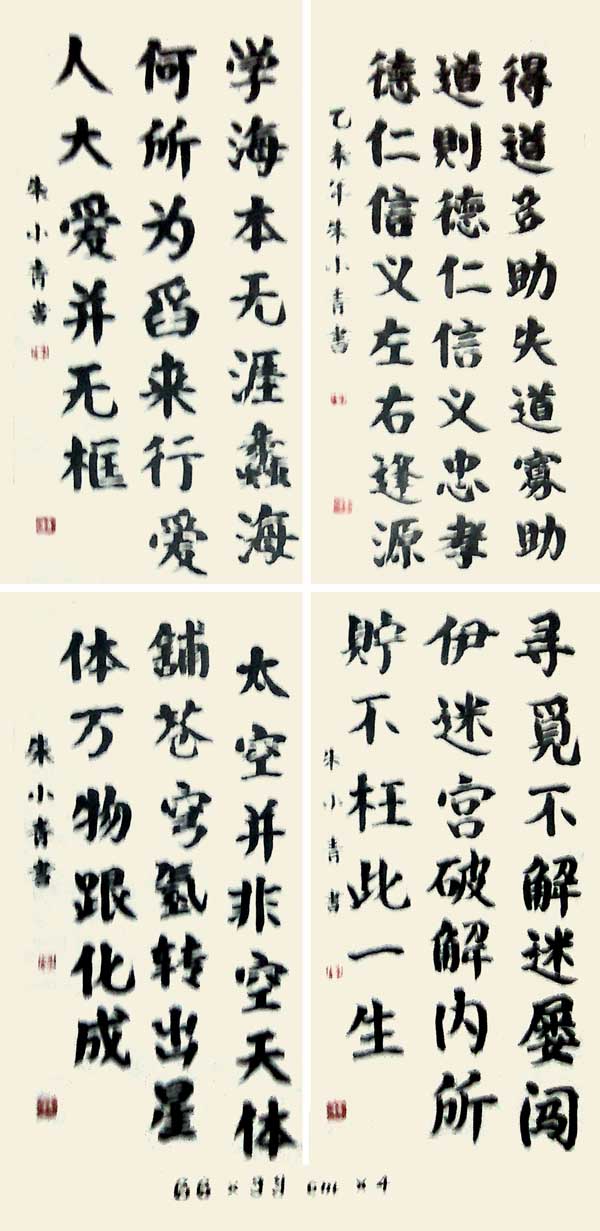 学海本无涯蠡海
何所为舀来行爱
人大爱并无框
朱小青書
得道多助失道寡助
道則德仁信义忠孝
德仁信义左右逢源
乙未年朱小青書
太空并非空天体
舖苍穹氢转出星
体万物跟化成
朱小青書
寻覓不解迷屡闯
伊迷宫破解内所
貯不枉此一生
朱小青書
66×99 cm×4